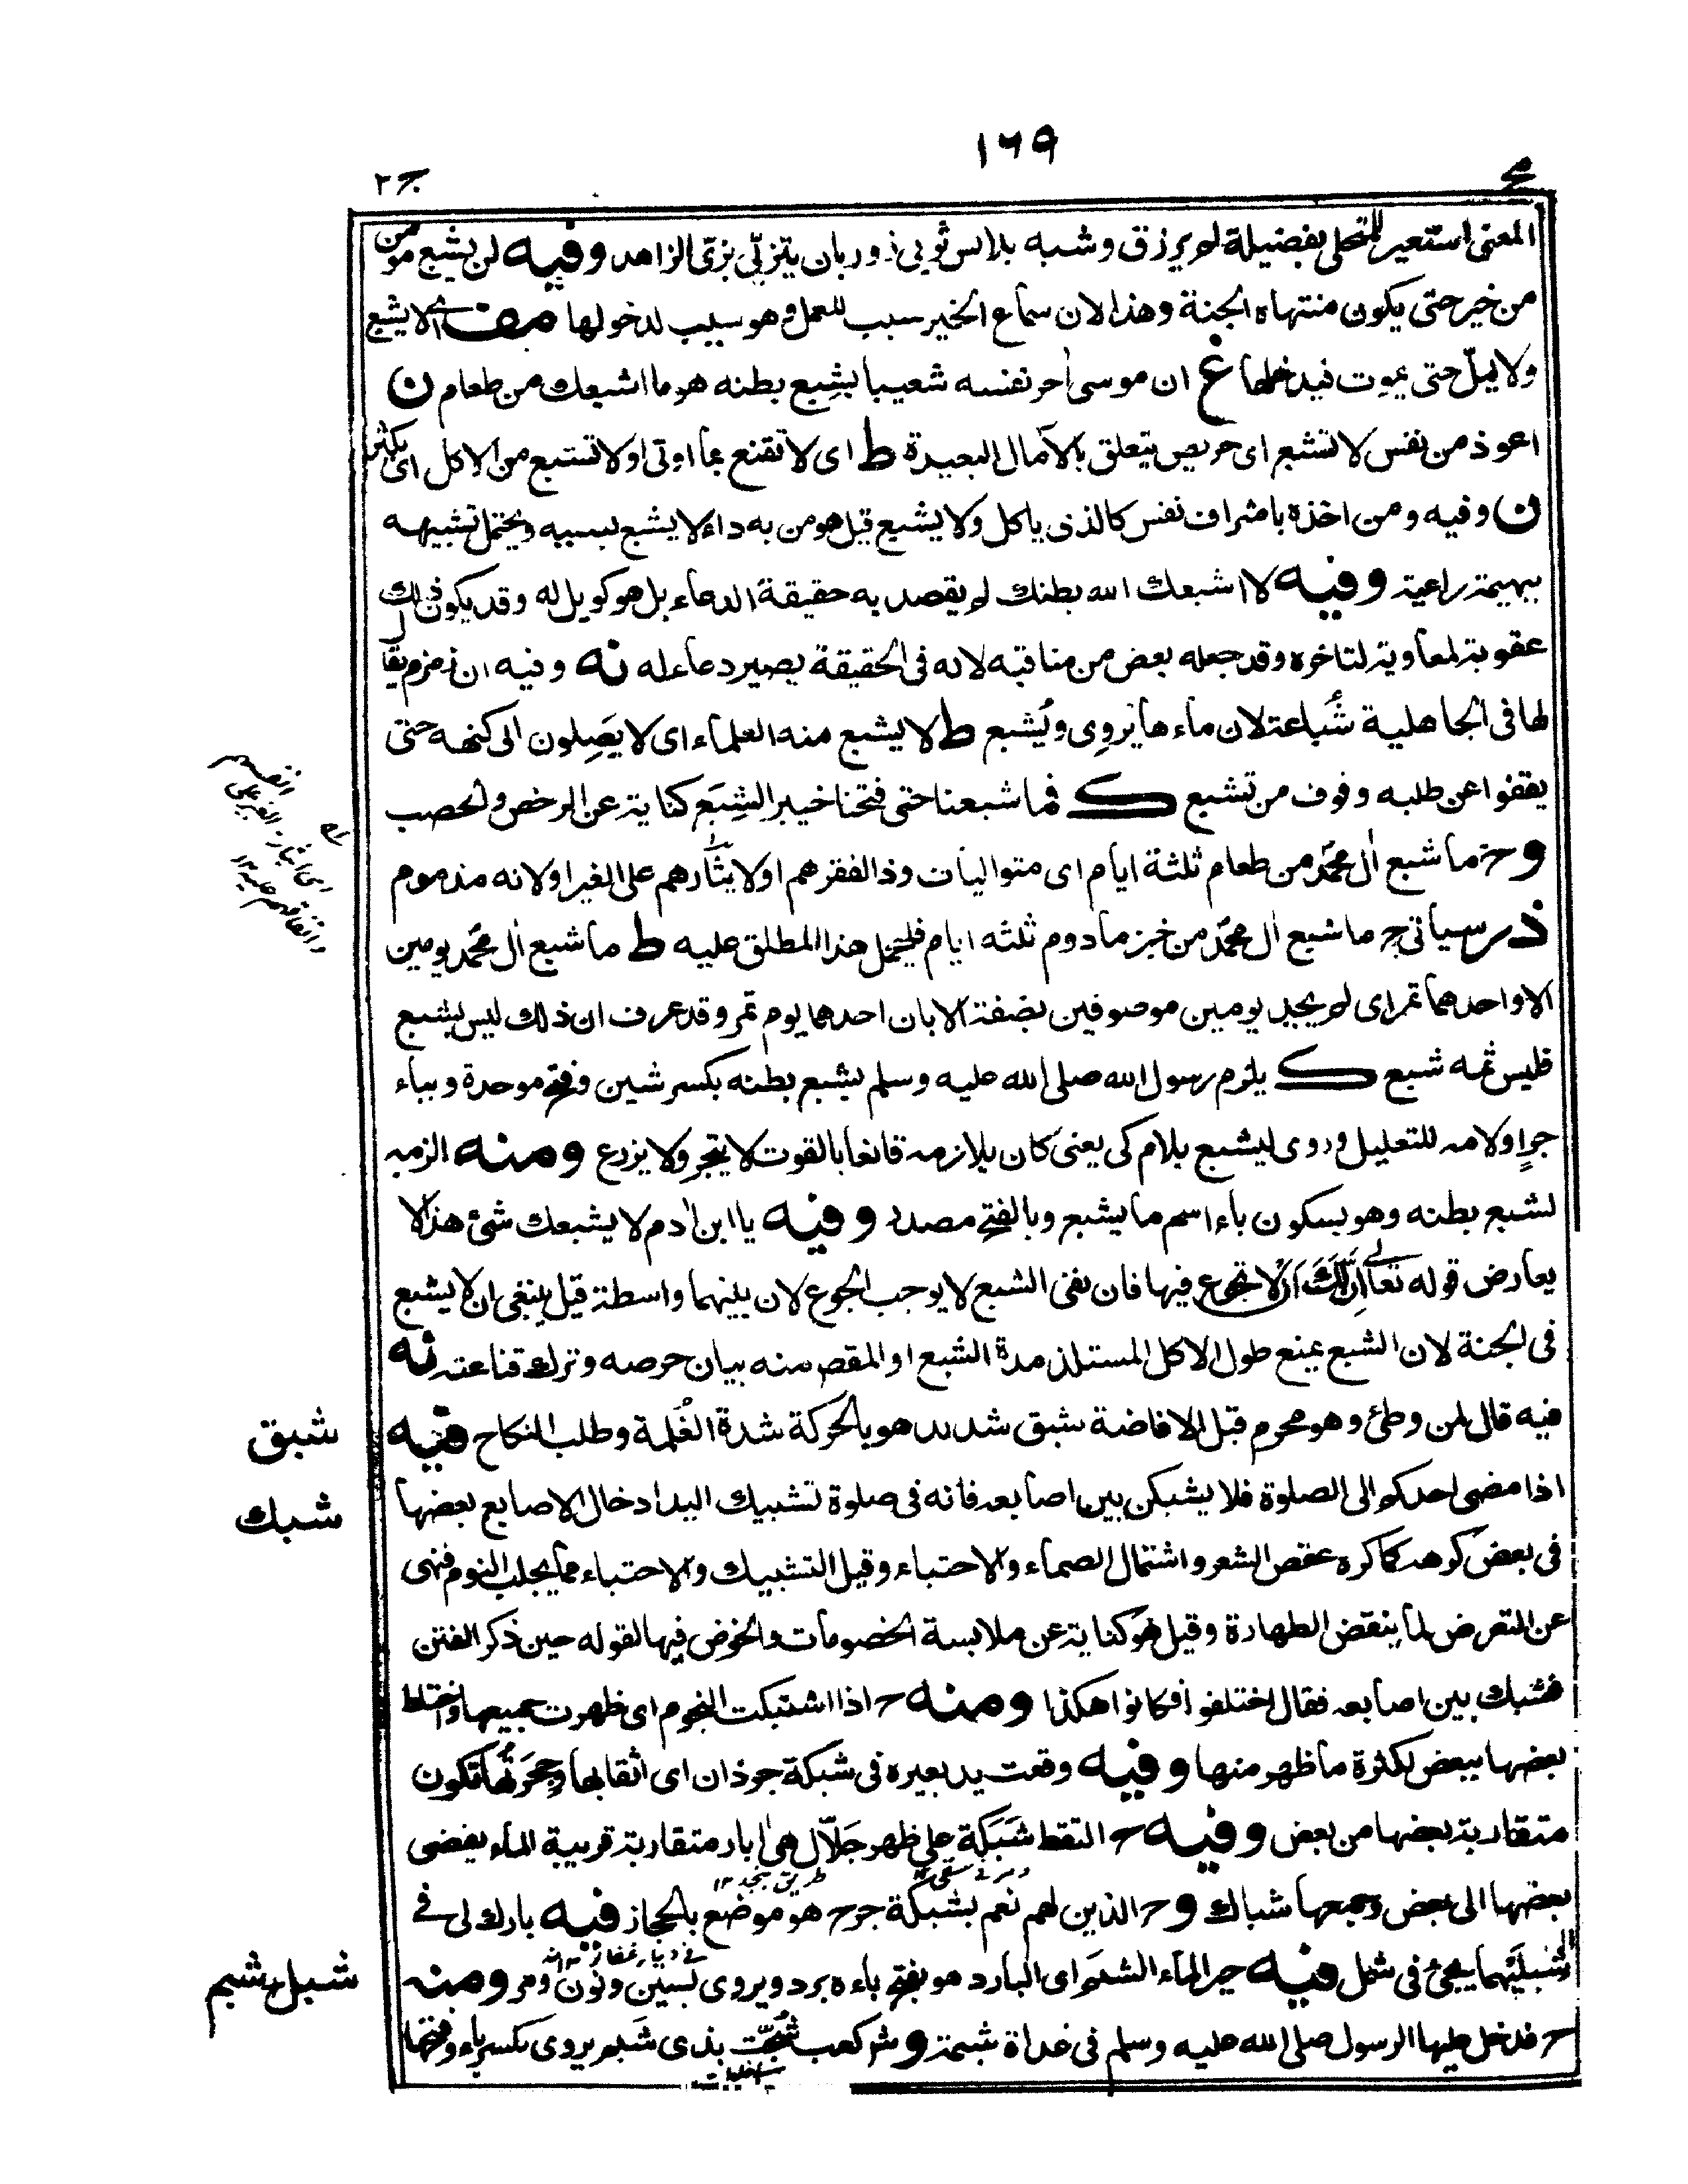 ١٦٩
ج ٢
المعنى استعير للتحلى بفضيلة لم يرزق وشبه بلابس ثوبى زور بان يتزيّى بزىّ الزاهد وفيه لن يشبع مومن
من خير حتى يكون منتهاه الجنة وهذا لان سماع الخير سبب للعمل وهو سبب لدخولها مف اى لا يشبع
ولا يملّ حتى يموت فيدخلها غ ان موسى اٰجر نفسه شعيبا بشِبع بطنه هو ما اشبعك من طعام ن
اعوذ من نفس لا تشبع اى حريص يتعلق بالآمال البعيدة ط اى لا تقنع بما اوتى او لا تشبع من الاكل اى يكثر
ن وفيه ومن اخذه باشراف نفس كالذى ياكل ولا يشبع قيل هو من به داء لا يشبع بسببه ويحتمل تشبيهه
ببهيمة راعية وفيه لا اشبعك الله بطنك لم يقصد به حقيقة الدعاء بل هو كويل له وقد يكون ذلك
عقوبة لمعاوية لتاخره وقد جعله بعض من مناقبه لانه فى الحقيقة يصير دعاء له نه وفيه ان زمزم يقال
لها فى الجاهلية شُباعة لان ماءها يُروِى ويُشبع ط لا يشبع منه العلماء اى لا يَصِلون الى كنهه حتى
يقفوا عن طلبه وقوف من تشبع ك فما شبعنا حتى فتحنا خيبر الشِبَع كناية عن الرخص والخصب
وح ما شبع اٰل محمد من طعام ثلثة ايام اى متواليات وذا لفقرهم او لايثارهم على الغير او لانه مذموم
ذر سياتى ح ما شبع اٰل محمد من خبز مادوم ثلثه ايام فليحمل هذا المطلق عليه ط ما شبع اٰل محمد يومين
الا واحدهما تمر اى لم يجد يومين موصوفين بصفة الا بان احدهما يوم تمر وقد عرف ان ذلك ليس بشبع
فليس ثمه شبع ك يلزم رسول الله صلى الله عليه وسلم بشبع بطنه بكسر شين وفتح موحدة وبباء
جرا ولامه للتعليل وروى ليشبع بلام كى يعنى كان يلازمه قانعا بالقوت لا يتجر ولا يزرع ومنه الزمه
لشبع بطنه وهو بسكون باء اسم ما يشبع وبالفتح مصدر وفيه يا ابن اٰدم لا يشبعك شئ هذا لا
يعارض قوله تعالى اِنَّ لَكَ اَنْ لا تجوع فيها فان نفى الشبع لا يوجب الجوع لان بينهما واسطة قيل ينبغى ان لا يشبع
فى الجنة لان الشبع يمنع طول الاكل المستلذ مدة الشبع او المقصد منه بيان حرصه وترك قناعته نه
فيه قال لمن وطئ وهو محرم قبل الافاضة شبق شديد هو بالحركة شدة الغُلمة وطلب النكاح فيه
شبق
اذا مضى احدكم الى الصلوة فلا يشبكن بين اصابعه فانه فى صلوة تشبيك اليد ادخال الاصابع بعضها
شبك
فى بعض كرهه كما كره عقص الشعر واشتمال الصماء والاحتباء وقيل التشبيك والاحتباء مما يجلب النوم فنهى
عن التعرض لما ينقض الطهارة وقيل هو كناية عن ملابسة الخصومات والخوض فيها لقوله حين ذكر الفتن
فشبك بين اصابعه فقال اختلفوا فكانوا هكذا ومنه ح اذا اشتبكت النجوم اى ظهرت جميعها واختلط
بعضها ببعض لكثرة ما ظهر منها وفيه وقعت يد بعيره فى شبكة جرذان اى انقابها وجِحَرتُها تكون
متقاربة بعضها من بعض وفيه ح التقط شَبَكة على ظهر جَلّال هى اٰبار متقاربة قريبة الماء يفضى
طريق بنجد ١٢
بعضها الى بعض وجمعها شباك وح الذين لهم نعم بشبكة جرح هو موضع بالحجاز فيه بارك لى فى
فى ديار غفار
شبليَهما يجئ فى شمل فيه خير الماء الشبم اى البارد هو بفتح باءه برد ويروى بسين ونون ومر ومنه
شبل شبم
ح فدخل عليها الرسول صلى الله عليه وسلم فى غداة شبمة وشر كعب شُجّت بذى شبم يروى بكسر باء وفتحها